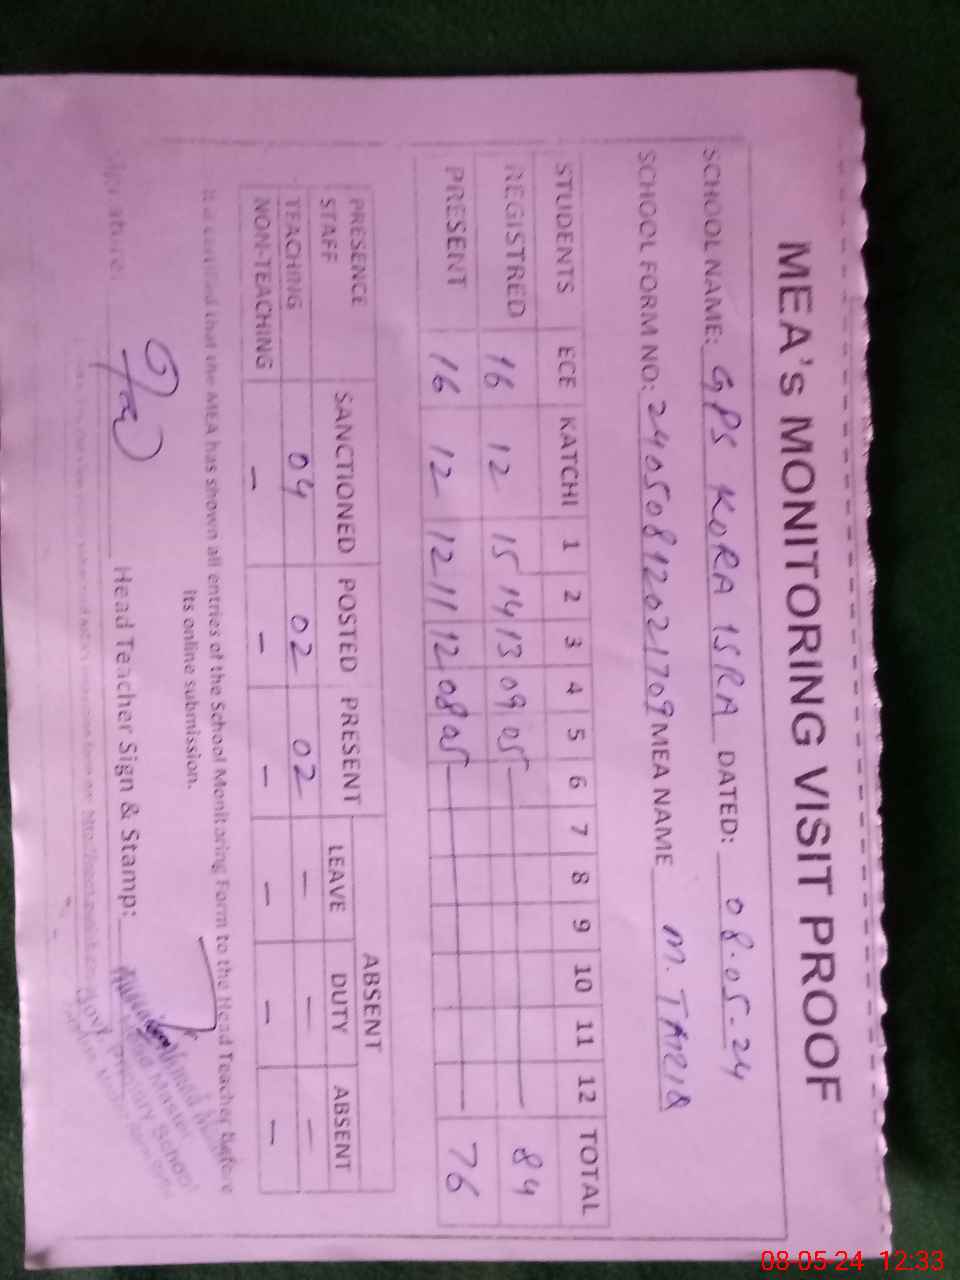 MEA's MONITORING VISIT PROOF
SCHOOL NAME: GPS KORA ISRA DATED: 08.05-24
SCHOOL FORM NO: 24050812021709 MEA NAME M. TARIQ
STUDENTS ECE KATCHI 1 2 3 4 5 6 7 8 9 10 11 12 TOTAL
REGISTRED 16 12 15 14 13 09 05 — 84
PRESENT 16 12 12 11 12 08 05 — 76
PRESENCE ABSENT
STAFF SANCTIONED POSTED PRESENT LEAVE DUTY ABSENT
TEACHING 04 02 02 – – –
NON-TEACHING - - - - - -
It is certified that the MEA has shown all entries of the School Monitoring Form to the Head Teacher before
its online submission.
Signature: Head Teacher Sign & Stamp:
Head Master
Govt. Primary School
08-05-24 12:33